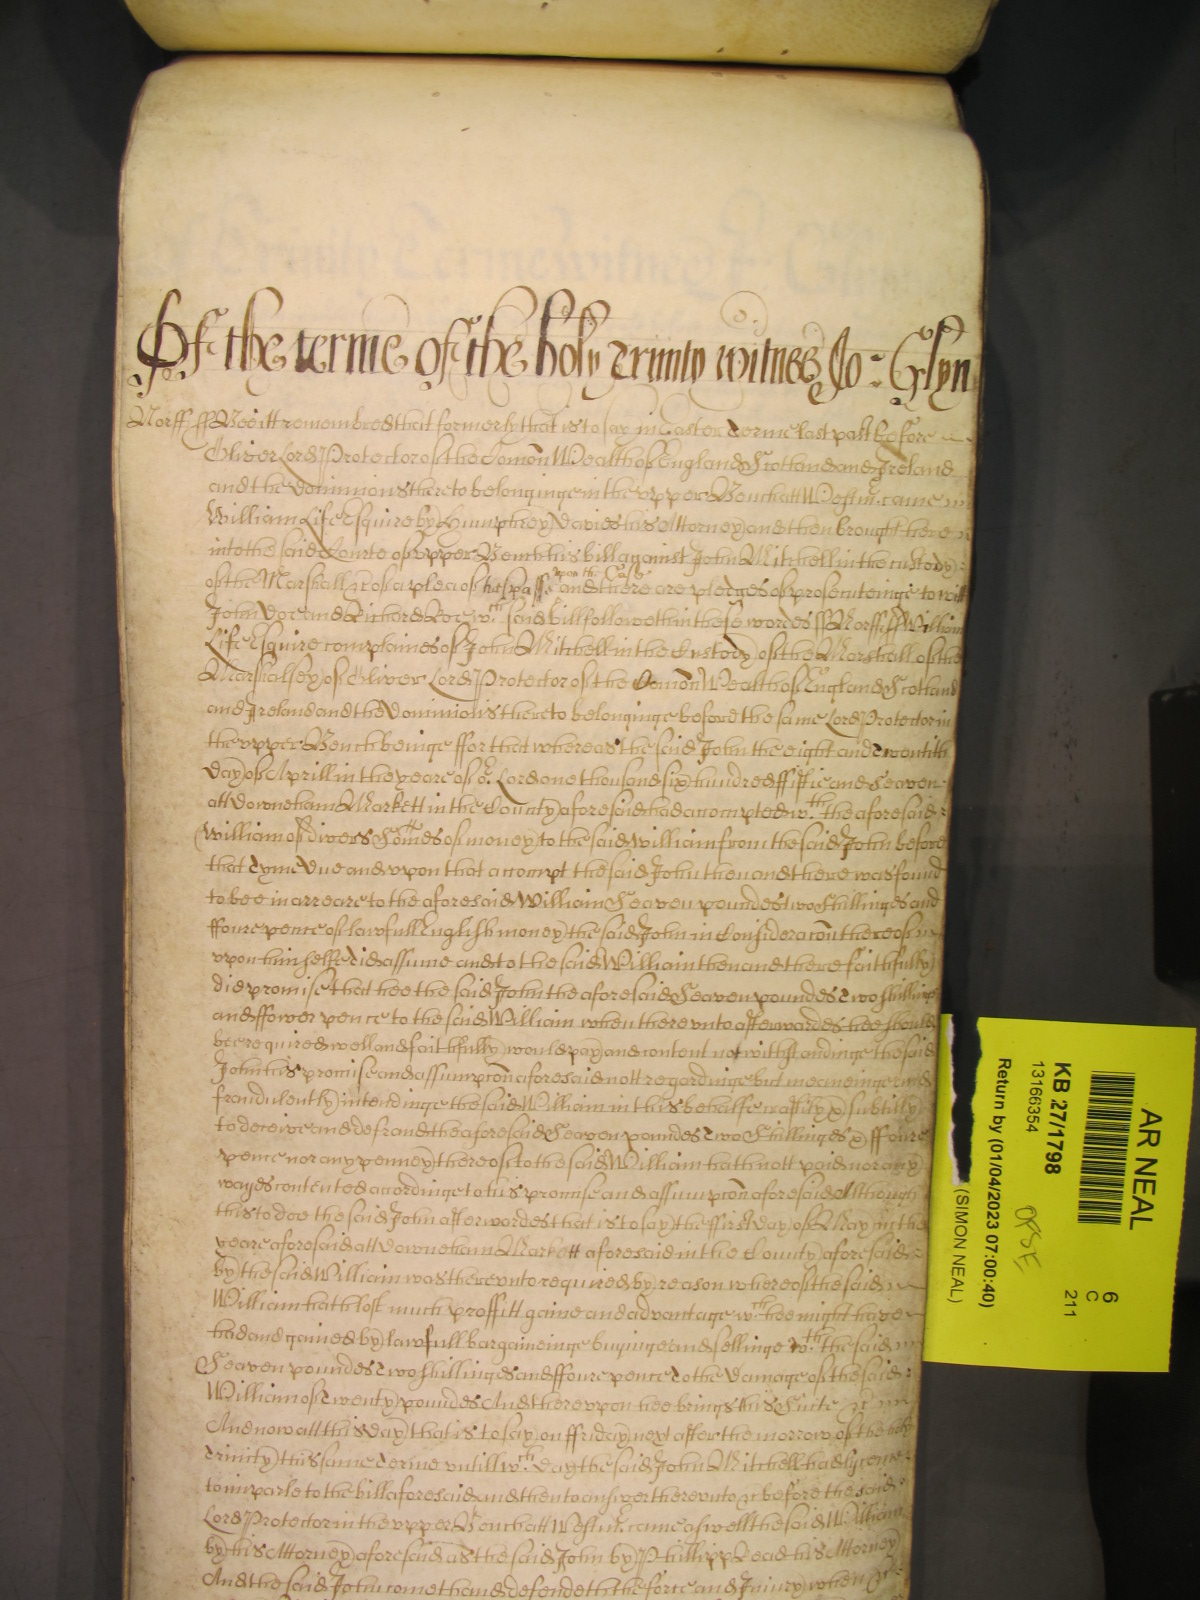 Of the terme of the holy Trinity witnes Jo: Glyn
Norff ss Bee itt remembred that formerly that is to say in Easter Terme last past before
Oliver Lord Protector of the Comon Wealth of England Scotland and Ireland
and the Dominions thereto belonginge in the upper Bench att Westmr. came
William Life Esquire by Humphrey Davies his Attorney and then brought here
into the said Courte of upper Bench his bill against John Mitchell in the custody
of the Marshall &c of a plea of trespasse upon the Case and there are pledges of prosecuteinge to witt
John Doe and Richard Roe wch. said bill followeth in these wordes ss Norff ss William
Life Esquire complaines of John Mitchell in the Custody of the Marshall of the
Marshalsey of Oliver Lord Protector of the Comon Wealth of England Scotland
and Ireland and the Dominions thereto belonginge before the same Lord Protector in
the upper Bench beinge ffor that whereas the said John the eight and twentith
day of Aprill in the yeare of or. Lord one thousand six hundred ffiftie and Seaven
att Downeham Markett in the County aforesaid had accompted wth. the aforesaid
William of divers Somes of money to the said William from the said John before
that tyme due and upon that accompt the said John then and there was found
to bee in arreare to the aforesaid William Seaven poundes two shillinges and
ffoure pence of lawfull English money the said John in Consideracon thereof
upon himselfe did assume and to the said William then and there faithfully
did promise that hee the said John the aforesaid Seaven poundes two shillings
and ffower pence to the said William when thereunto afterwardes hee should
bee required well and faithfully would pay and content notwithstandinge the said
John his promise and assumpcon aforesaid nott regardinge but meaneinge and
fraudulently intendinge the said William in this behalfe craftily & subtilly
to deceive and defraud the aforesaid Seaven poundes two Shillinges & ffoure
pence nor any penney thereof to the said William hath nott paid nor any
wayes contented accordinge to his promise and assumpcon aforesaid Although
this to doe the said John afterwardes that is to say the ffirst day of May in the
yeare aforesaid att Downeham Markett aforesaid in the County aforesaid
by the said William was thereunto required by reason whereof the said
William hath lost much proffitt gaine and advantage wch. hee might have
had and gained by lawfull bargaineinge buyinge and sellinge wth. the said
Seaven poundes two shillinges and ffoure pence To the Damage of the said
William of twenty poundes And thereupon hee brings this Suite &c
And now att this day that is to say on ffriday next after the morrow of the holy
Trinity this same Terme untill wch. day the said John Mitchell had lycence
to imparle to the bill aforesaid and then to answer thereunto &c before the said
Lord Protector in the upper Bench att Westmr. came aswell the said William
by his Attorney aforesaid as the said John by Phillipp Read his Attorney
And the said John cometh and defendeth the force and Injury when &c
AR NEAL
6
C
211
KB 27/1798
13166354
Return by (01/04/2023 07:00:40)
(SIMON NEAL)